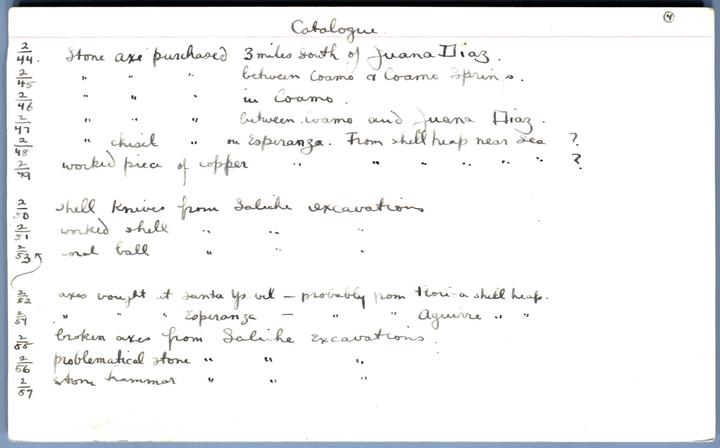 4
Catalogue
2/44. Stone axe purchased 3 miles South of Juana Diaz.
2/45 " " " between Coamo & Coamo Springs.
2/46 " " " in Coamo.
2/47 " " " between Coamo and Juana Diaz.
2/48 " chisel " on Esperanza. From shell heap near Sea ?
2/49 worked piece of copper " " " " " " ?
2/50 shell knives from Saliche excavations
2/51 worked shell " " "
2/53 coral ball " " "
2/52 axes bought at Santa - probably from shell heap.
2/54 " " " Esperanza - " " Aguirre " "
2/55 broken axes from Saliche Excavations.
2/56 problematical stone " " "
2/57 stone hammar " " "